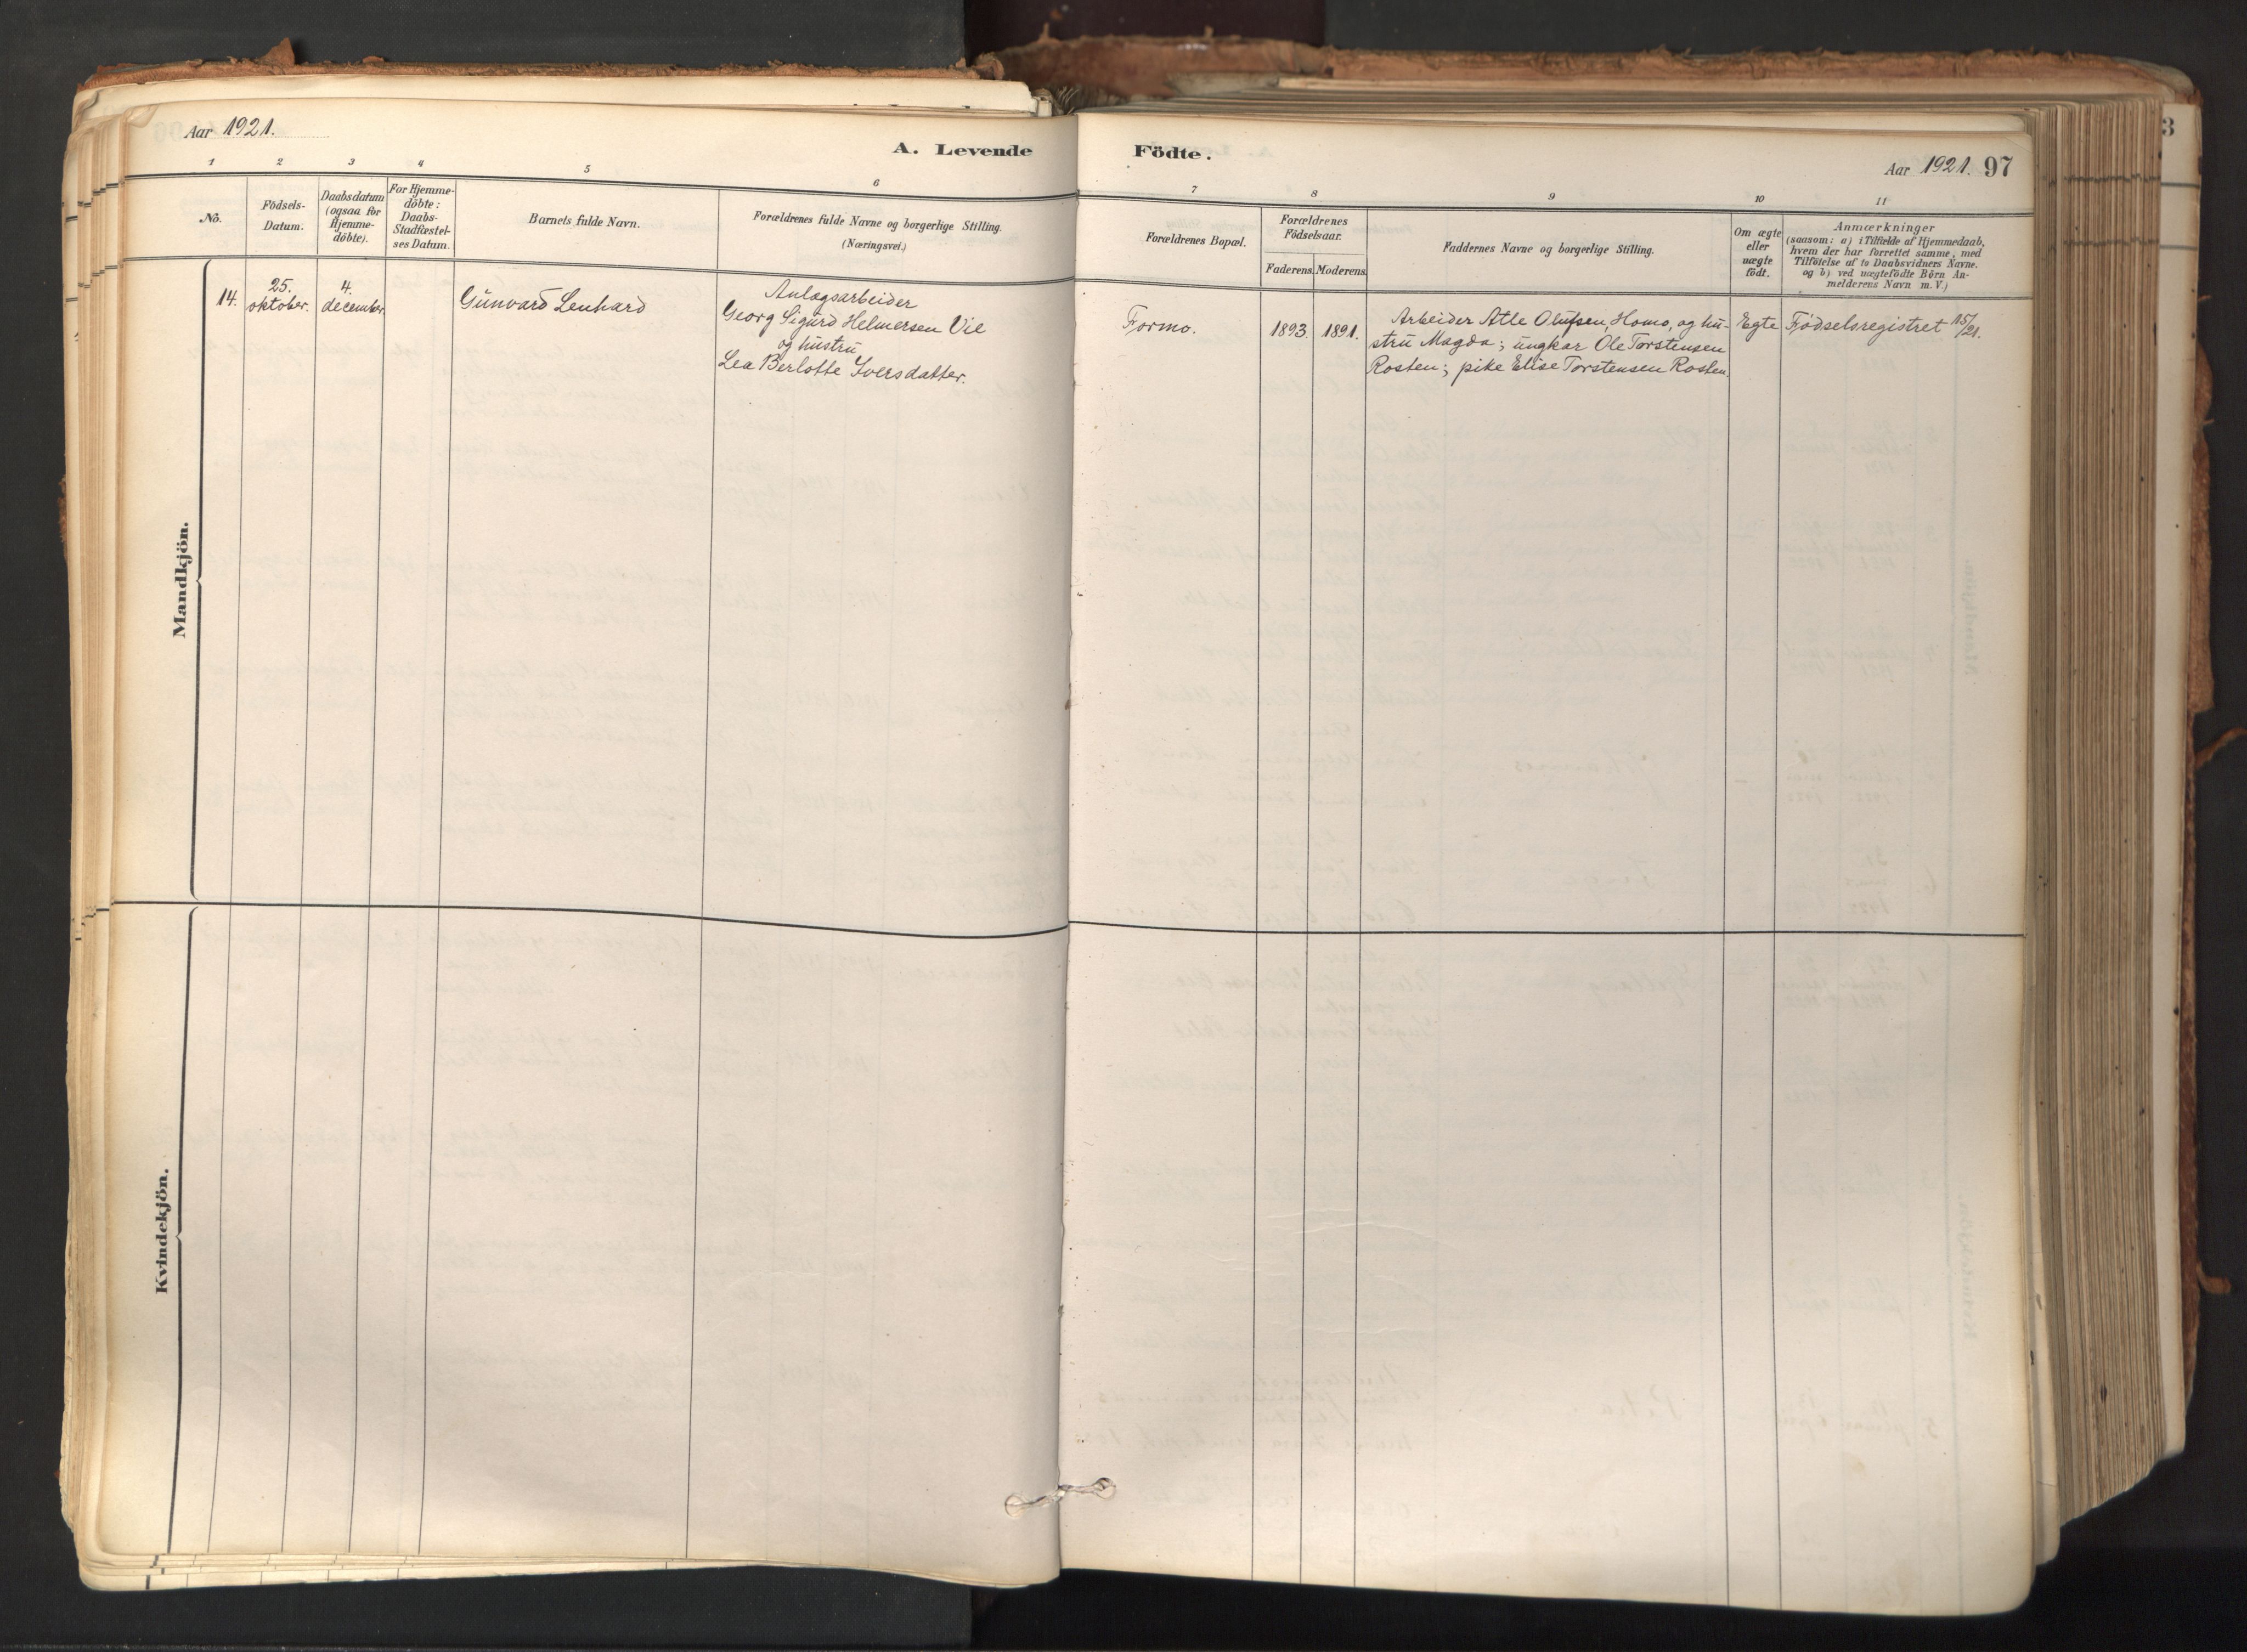 Aar 1921.
A. Levende Födte.
Aar 1921. 97
1 2 3 4 5 6 7 8 9 10 11
No.
Födsels-
Datum.
Daabsdatum
(ogsaa for
Hjemme-
döbte).
For Hjemme-
döbte:
Daabs-
Stadfæstel-
ses Datum.
Barnets fulde Navn.
Forældrenes fulde Navne og borgerlige Stilling.
(Næringsvei.)
Forældrenes Bopæl.
Forældrenes
Födselsaar.
Faderens. Moderens.
Faddernes Navne og borgerlige Stilling.
Om ægte
eller
uægte
födt.
Anmærkninger
(saasom: a) i Tilfælde af Hjemmedaab,
hvem der har forrettet samme, med
Tilföielse af to Daabsvidners Navne.
og b) ved uægtefödte Börn An-
melderens Navn m. V.)
Mandkjön.
14.
25.
oktober.
4.
december
Gunvard Lenhard
Anlægsarbeider
Georg Sigurd Helmersen Vie
og hustru
Lea Berlotte Iversdatter.
Formo.
1893. 1891.
Arbeider Atle Olufsen, Homo, og hu-
stru Magda; ungkar Ole Torstensen
Rosten; pike Elise Torstensen Rosten.
Egte
Födselsregistret 15/21.
Kvindekjön.
3